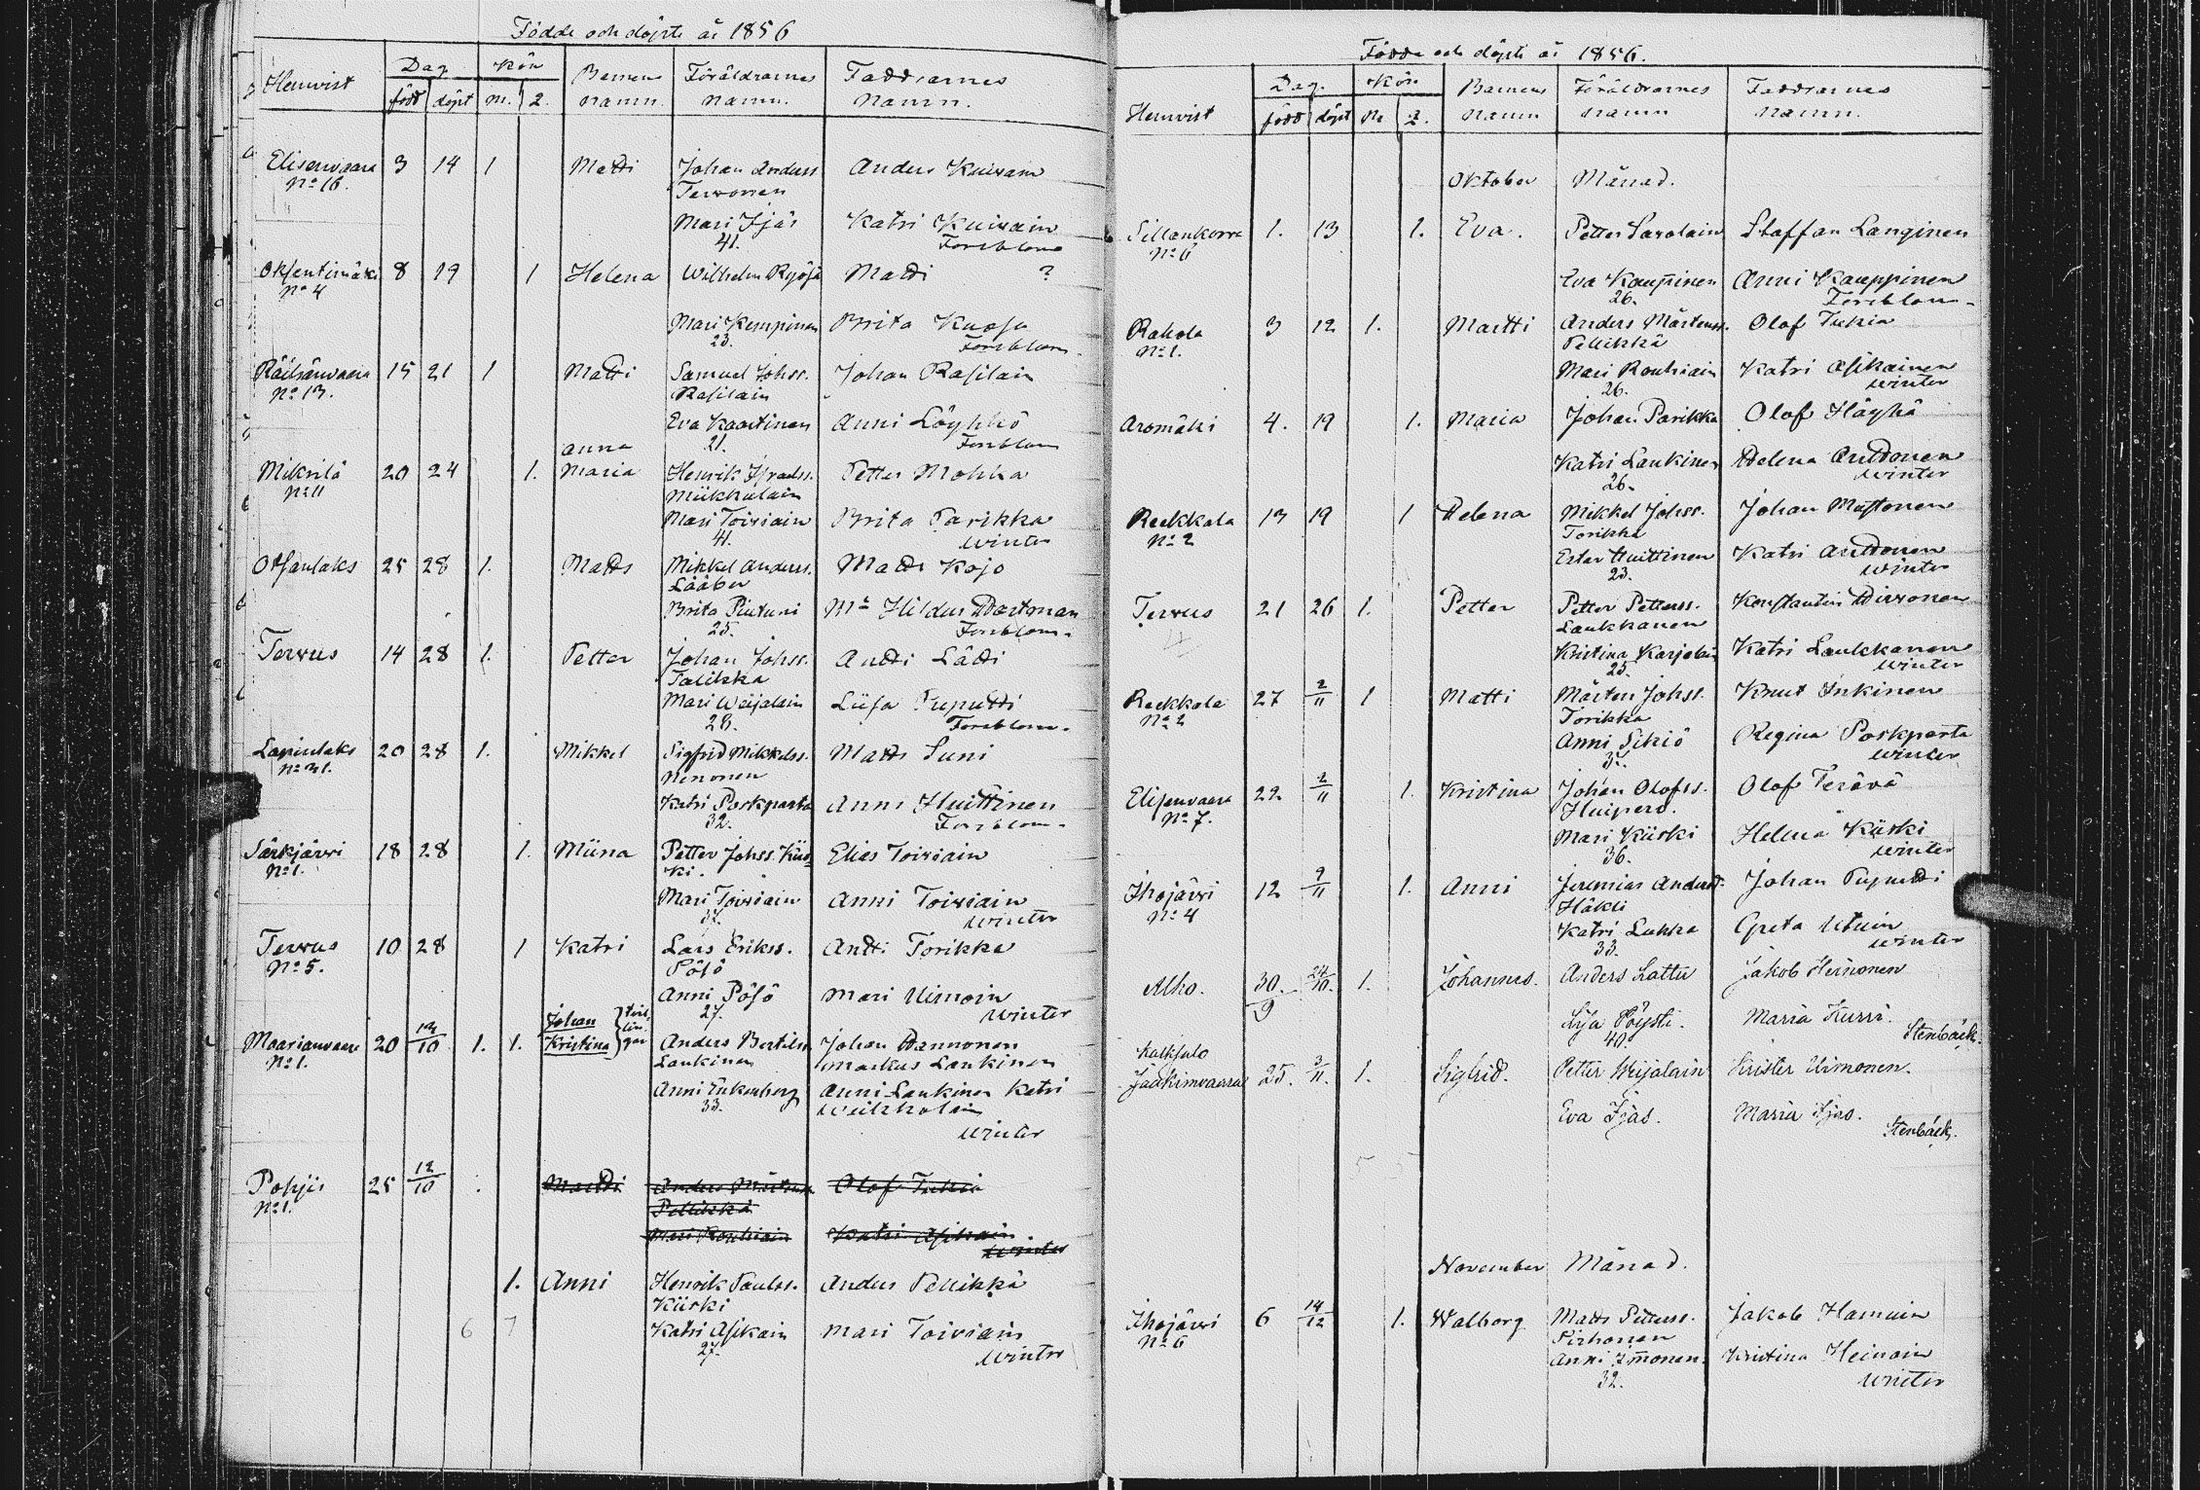 Födde och döpte år 1856
Hemvist Dag Kön Barnens Föräldrarnes Faddrarnes
född döpt m. q. namn. namn. namn.
Elisenvaara 3 14 1 Matti Johan Anderss Anders Kuivain
No 16. Tervonen
Mari Ijäs Katri Kuivain
41. Forsblom
Oksentimäki 8 19 1 Helena Wilhelm Ryösä Matti ?
No 4
Mari Kemppinen Brita Kuosa
23. Forsblom
Räihänvaara 15 21 1 Matti Samuel Johss. Johan Rasilain
No 13. Rasilain
Eva Kaartinen Anni Löyhkö
21. Forsblom
Anna
Mikrilä 20 24 1. Maria Henrik Israelss. Petter Mohka
No 11 Miikkulain
Mari Toiviain Brita Parikka
41. Winter
Otsanlaks 25 28 1. Matts Mikkel Anderss. Matti Kojo
Lääber
Brita Piutuni Ma Hildur Wartman
25. Forsblom.
Tervus 14 28 1. Petter Johan Johss. Antti Lätti
Talikka
Mari Weijalain Liisa Puputti
28. Forsblom.
Lapinlaks 20 28 1. Mikkel Sigfrid Mikkelss. Matts Suni
No 31. Nenonen
Katri Porkparta Anni Huittinen
32. Forsblom.
Särkjärvi 18 28 1. Miina Petter Johss. Kiis- Elias Toiviain
No 1. ki.
Mari Toiviain Anni Toiviain
37. Winter
Tervus 10 28 1 Katri Lars Erikss. Antti Torikka
No 5. Pösö
Anni Pösö Mari Uimoin
27. Winter
Johan tvil-
Maarianvaara 20 12/10 1. 1. Kristina lin- gar Anders Bertilss Johan Wannonen
No 1. Laukinen Markus Laukinen
Anni Enkenberg Anni Laukinen Katri
33. Weikkolain
Winter
Pohjis 25 12/10 Martti Anders Mårtenss Olof Tukia
No 1. Pellikkä
Mari Rouhiain Katri Asikain
Winter
1. Anni Henrik Paulss. Anders Pellikkä
Kiiski
6 7 Katri Asikain Mari Toiviain
27. Winter
Födde och döpte år 1856.
Hemvist Dag. Kön Barnens Föräldrarnes Faddrarnes
född döpt m q. namn namn namn.
Oktober Månad.
Sillankorva 1. 13 1. Eva. Petter Savolain Staffan Langinen
No 6
Eva Kauppinen Anni Kauppinen
26. Forsblom.
Rahola 3 12 1. Martti Anders Mårtenss. Olof Tukia
No 1. Pellikkä
Mari Rouhiain Katri Asikainen
26. Winter
Aromäki 4. 19 1. Maria Johan Parikka Olof Häyhä
Katri Laukinen Helena Anttonen
26. Winter
Reekkala 13 19 1 Helena Mikkel Johss. Johan Mustonen
No 2 Torikka
Ester Huittinen Katri Anttonen
23. Winter
Tervus 21 26 1. Petter Petter Petterss. Konstantin Hirvonen
Laukkanen
Kristina Karjalain Katri Laukkanen
25. Winter
Reekkala 27 2/11 1 Matti Mårten Johss. Knut Inkinen
No 2 Torikka
Anni Sikiö Regina Porkparta
Winter
Elisenvaara 22 2/11 1. Kristina Johan Olofss. Olof Terävä
No 7. Huipero.
Mari Kiiski Helena Kiiski
36. Winter
Ihojärvi 12 2/11 1. Anni Jeremias Anderss. Johan Puputti
No 4 Häkli
Katri Lukka Greta Utuin
33. Winter
Alho. 30./9 24/10. 1. Johannes. Anders Lattu Jakob Heinonen
Lisa Pöysti. Maria Kurri.
40. Stenbäck.
Kalksalo
Jaakimvaara 25. 3/11. 1. Sigfrid. Petter Weijalain Krister Uimonen.
Eva Ijäs. Maria Ijäs.
Stenbäck.
November Månad.
Ihojärvi 6 14/12 1. Walborg Matts Petterss. Jakob Hamuin
No 6 Pirhonen
Anni Immonen. Kristina Heinoin
32. Winter